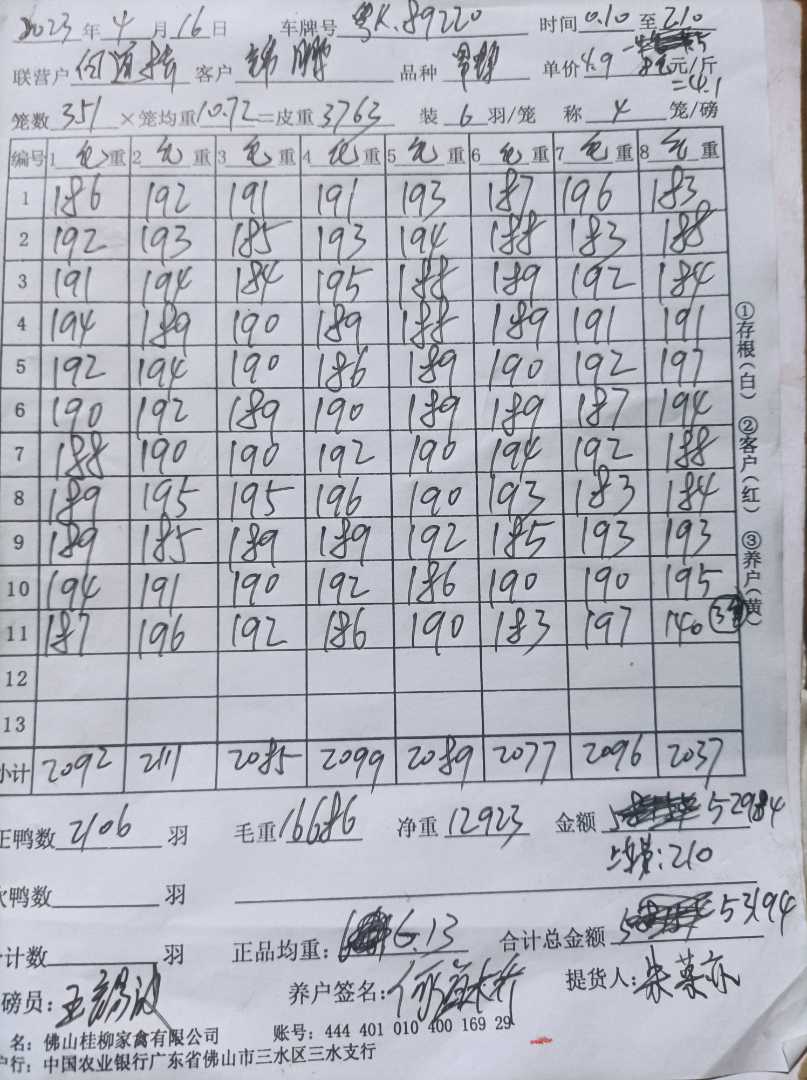 2023年4月16日 车牌号 粤K.89220 时间0.10至2.10
联营户 客户 品种 单价4.9 元/斤
=4.1
笼数351×笼均重10.72=皮重3763 装6羽/笼 称4笼/磅
编号 1毛重 2毛重 3毛重 4毛重 5毛重 6毛重 7毛重 8毛重
1 186 192 191 191 193 187 196 183
2 192 193 185 193 194 188 183 188
3 191 194 184 195 188 189 192 184
4 194 189 190 189 188 189 191 191
5 192 194 190 186 189 190 192 197
6 190 192 189 190 189 189 187 194
7 188 190 190 192 190 194 192 188
8 189 195 195 196 190 193 183 184
9 189 185 189 189 192 185 193 193
10 194 191 190 192 186 190 190 195
11 187 196 192 186 190 183 197 140
12
13
小计 2092 2111 2085 2099 2089 2077 2096 2037
正鸭数2106羽 毛重16686 净重12923 金额52984
:210
次鸭数 羽
合计数 羽 正品均重:6.13 合计总金额53194
磅员: 养户签名: 提货人:
名:佛山桂柳家禽有限公司 账号:444 401 010 400 169 29
户行:中国农业银行广东省佛山市三水区三水支行
①存根(白) ②客户(红) ③养户(黄)